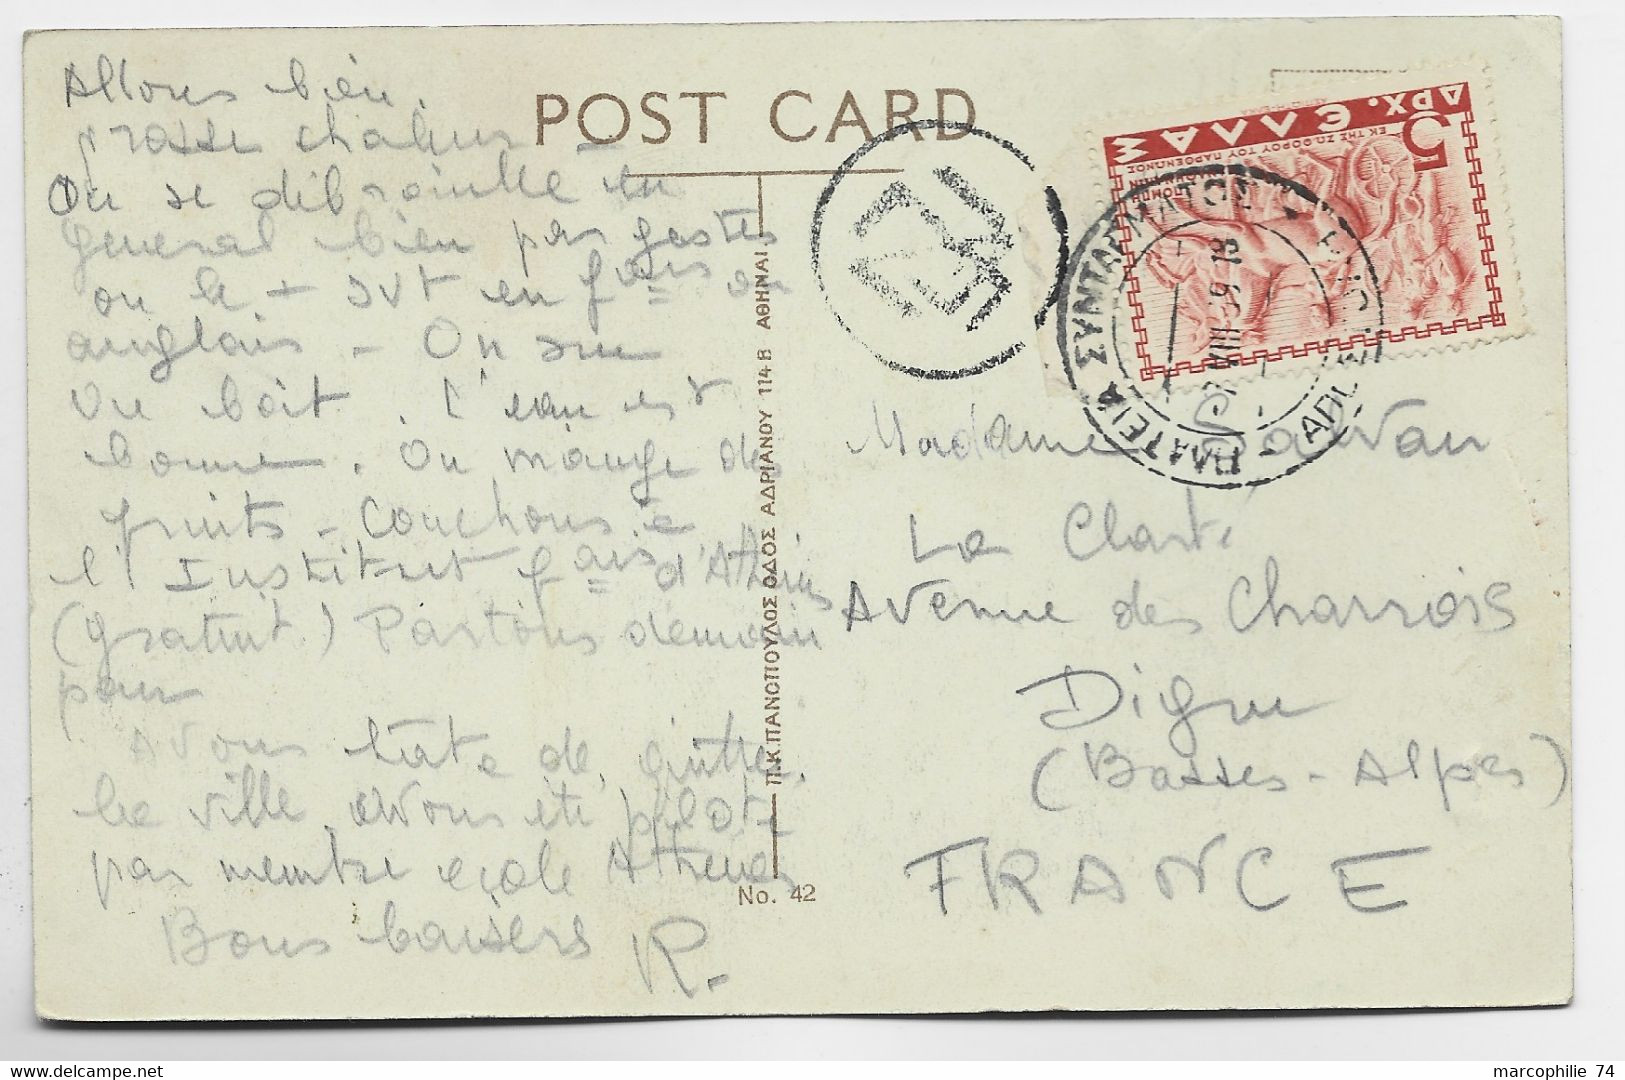 Allons bien.
grosse chaleur
On se débrouille en
general bien par gestes
ou le + svt en fçais ou
anglais - On sue
On boit. l'eau est
bonne. On mange des
fruits - Couchons à
l'Institut fçais d'Athènes
(gratuit.) Partons demain
pour
Avons hâte de quitter
la ville. Avons été piloté
par membre école Athènes
Bons baisers R.
POST CARD
Π.Κ.ΠΑΝΟΠΟΥΛΟΣ ΟΔΟΣ ΑΔΡΙΑΝΟΥ 114Β ΑΘΗΝΑΙ
No. 42
5
ΔΡΧ. ΕΛΛΑΣ
ΕΚ ΤΗΣ ΖΩΟΦΟΡΟΥ ΤΟΥ ΠΑΡΘΕΝΩΝΟΣ
ΠΛΑΤΕΙΑ ΣΥΝΤΑΓΜΑΤΟΣ
Madame
La Clarté
Avenue des Charrois
Digne
(Basses-Alpes)
FRANCE
marcophilie 74